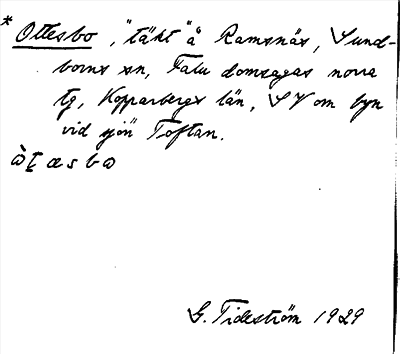 * Ottesbo, "täkt" å Ramsnäs, Sund-
borns sn, Falu domsagas norra
tg, Kopparbergs län, SV om byn
vid sjön Toftan.
G. Tideström 1929